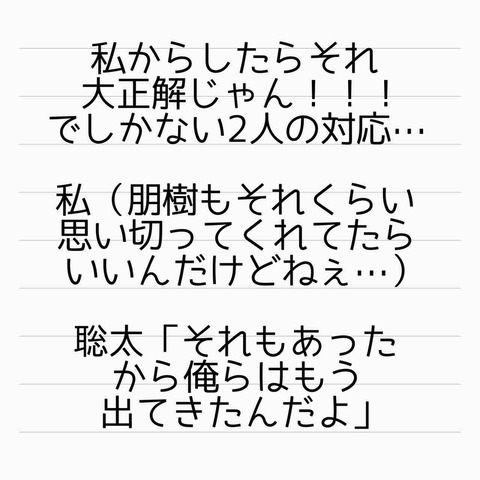 私からしたらそれ
大正解じゃん！！！
でしかない2人の対応…
私（朋樹もそれくらい
思い切ってくれてたら
いいんだけどねぇ…）
聡太「それもあった
から俺らはもう
出てきたんだよ」